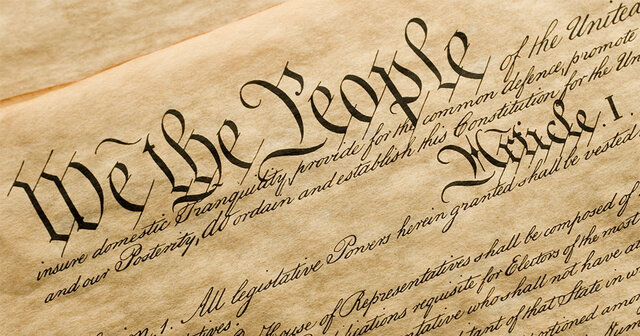 We the People of the United
insure domestic Tranquility, provide for the common defence, promote
and our Posterity, do ordain and establish this Constitution for the Uni
Article. I.
1. All legislative Powers herein granted shall be vested
House of Representatives shall be composed of
requisite for Electors of the most
who shall not have at
tant of that State in w